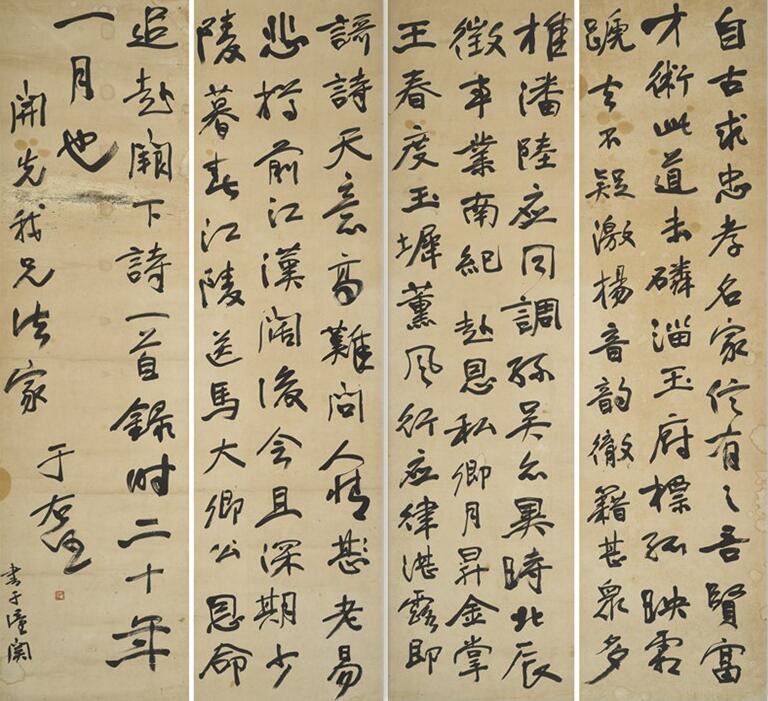 自古求忠孝名家信有之吾賢富
才術此道未磷淄玉府標孤映霜
蹏去不疑激楊音韵徹籍甚眾多
推潘陸應同調孫吳亦異時北辰
徵事業南紀赴恩私卿月昇金掌
王春度玉墀薰風行應律湛露即
謌詩天意高難問人情甚老易
悲樽前江漢闊後會且深期少
陵暮春江陵送馬大卿公恩命
追赴闕下詩一首錄時二十年
一月也
開先我兄法家
于右任
書于潼關